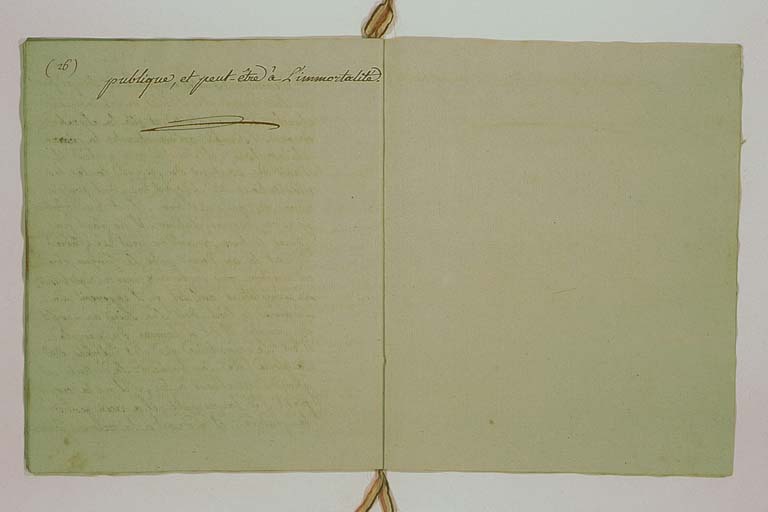 (26)
publique, et peut-être à l'immortalité.